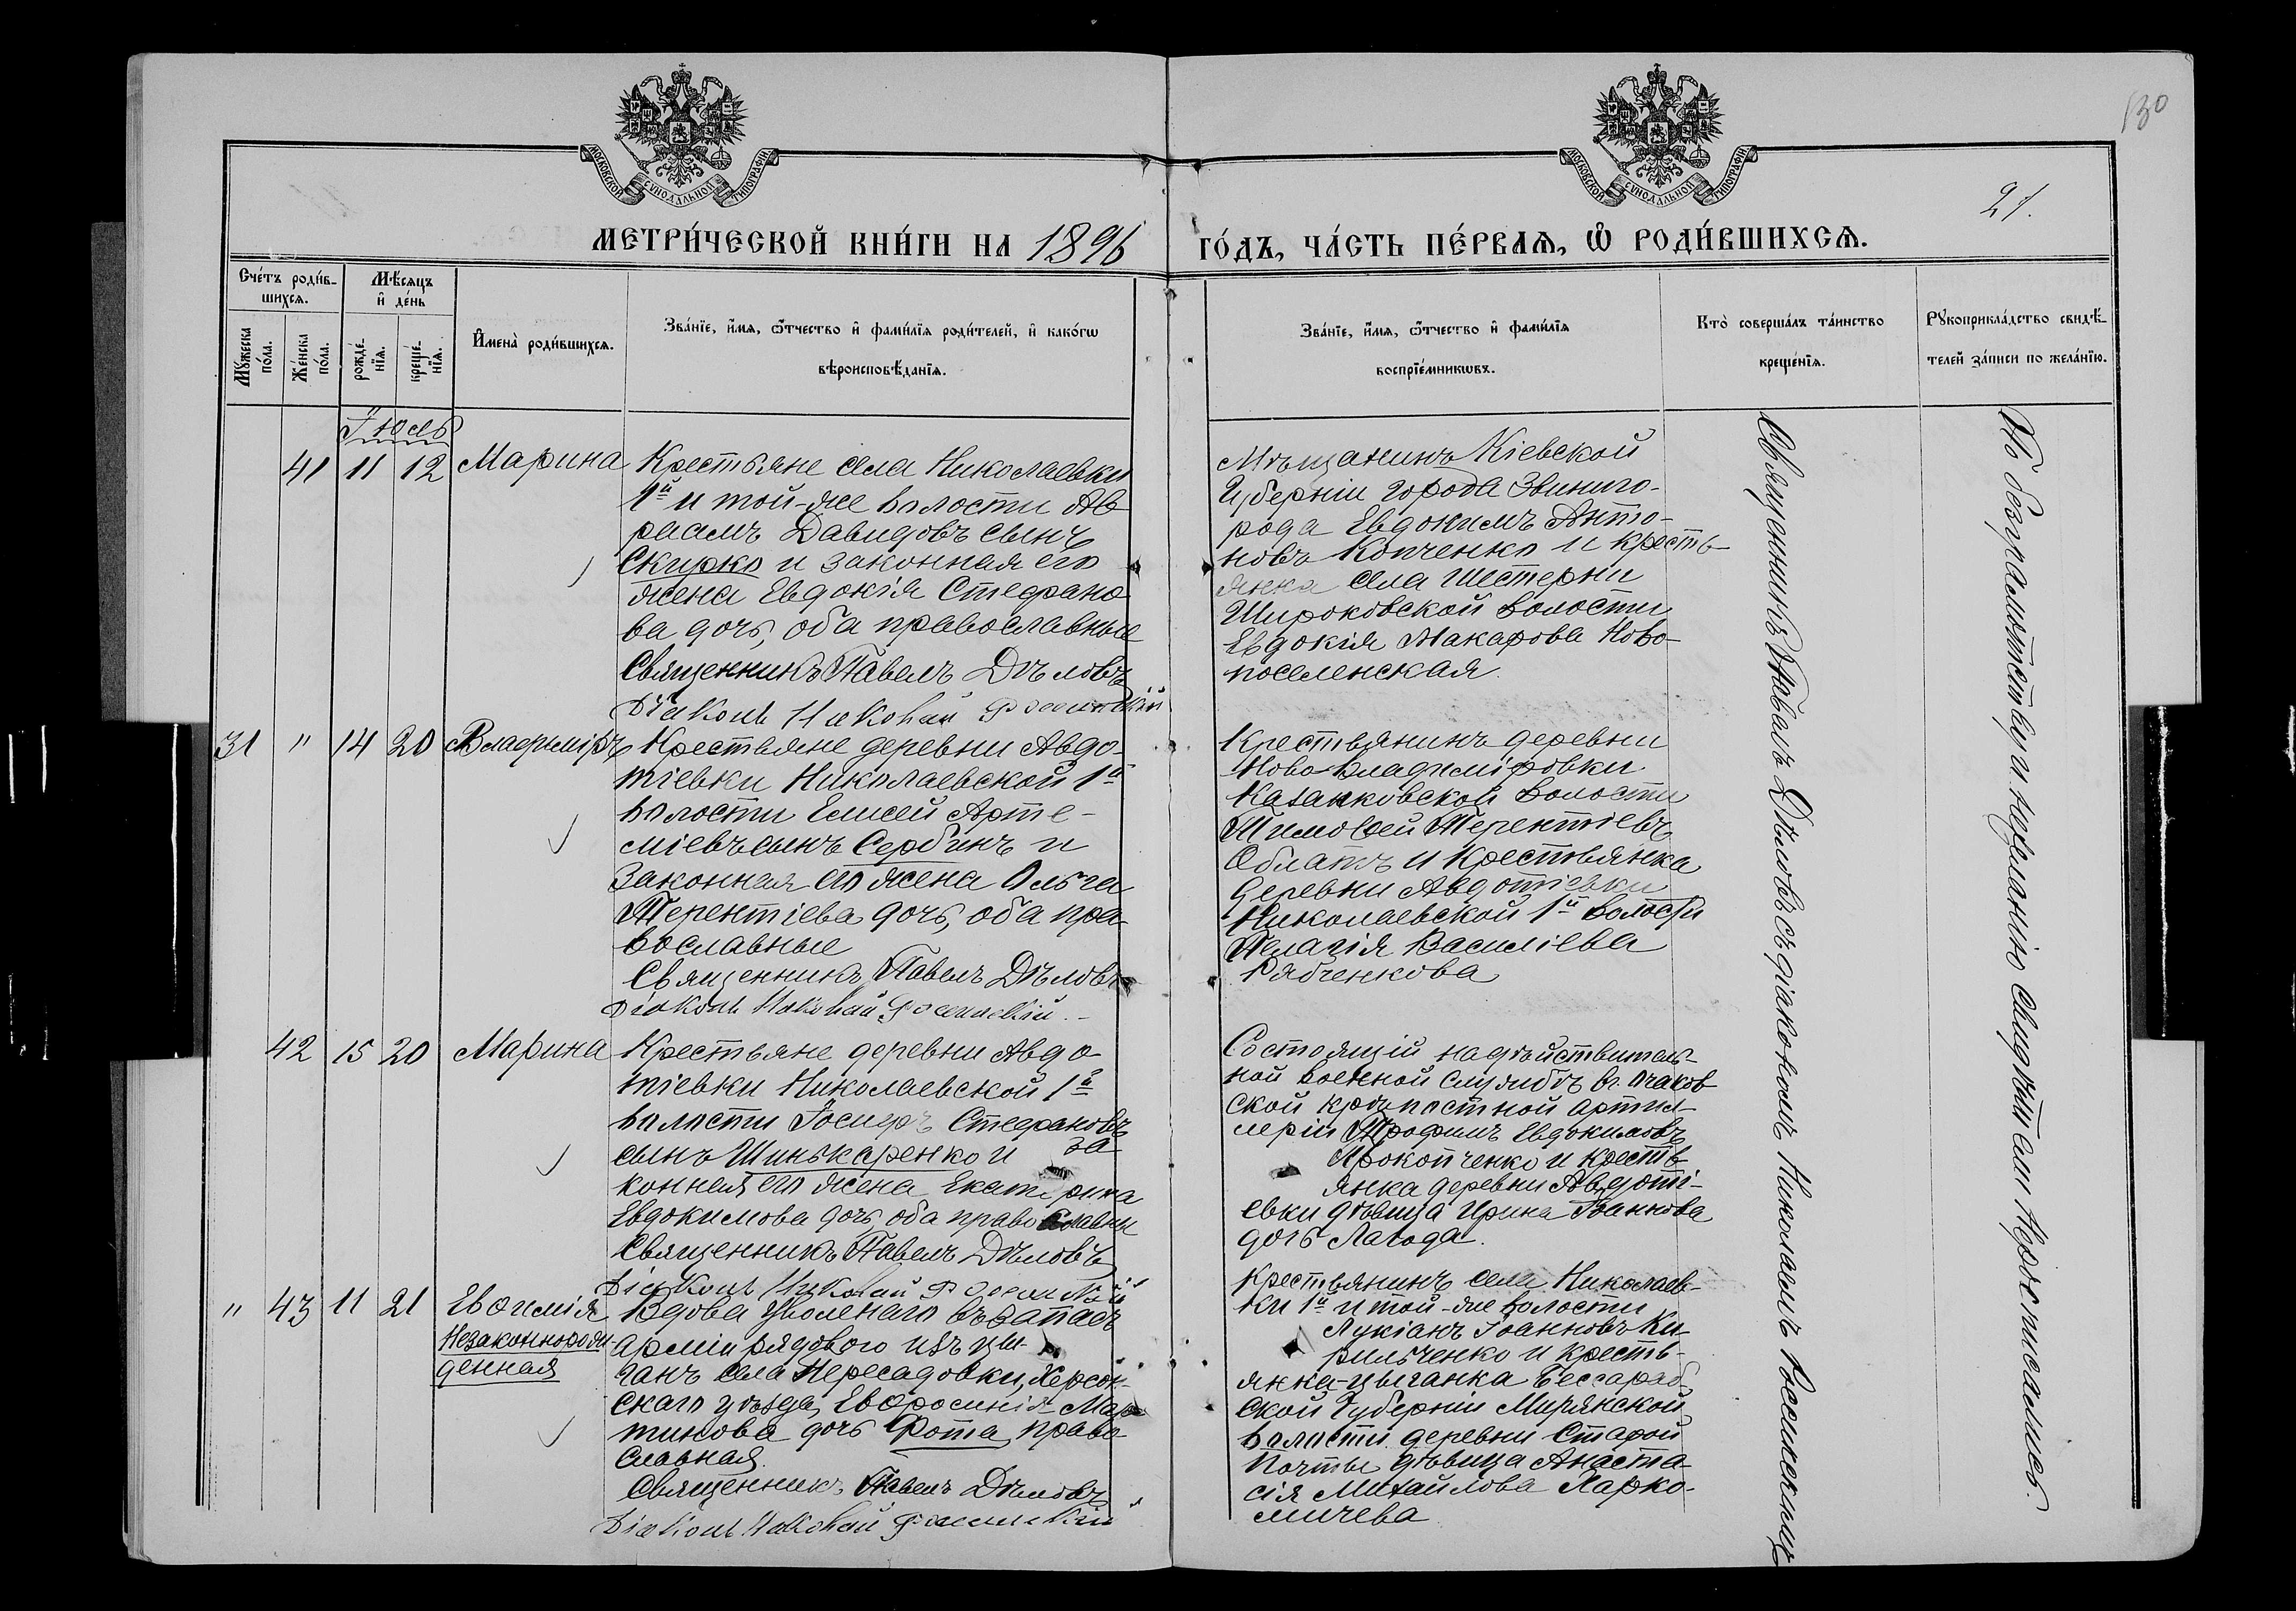 130
21.
МОСКОВСКОЙ СѴНОДАЛЬНОЙ ТИПОГРАФІИ
МОСКОВСКОЙ СѴНОДАЛЬНОЙ ТИПОГРАФІИ
МЕТРИ́ЧЕСКОЙ КНИ́ГИ НА 1896 ГО́ДЪ, ЧА́СТЬ ПЕ́РВАѦ, Ѽ РОДИ́ВШИХСѦ.
Сче́тъ роди́в-
шихсѧ.
Мꙋ́жеска
по́ла.
Же́нска
по́ла.
Мѣ́сѧцъ
и҆ де́нь
рожде́-
нїѧ.
креще́-
нїѧ.
И҆мена̀ роди́вшихсѧ.
Зва́нїе, и҆́мѧ, ѻ҆́тчество и҆ фами́лїѧ роди́телей, и҆ како́гѡ
вѣроисповѣ́данїѧ.
Зва́нїе, и҆́мѧ, ѻ҆́тчество и҆ фами́лїѧ
воспрїе́мникѡвъ.
Кто̀ соверша́лъ та́инство
креще́нїѧ.
Рꙋкоприкла́дство свидѣ́-
телей за́писи по жела́нїю.
Іюль
41 11 12 Марина
Крестьяне села Николаевки
1й и той-же волости Ав
раамъ Давидовъ сынъ
Скирко и законная его
жена Евдокія Стефано
ва дочь, оба православные
Священникъ Павелъ Дѣловъ
Діаконъ Николай
Мѣщанинъ Кіевской
Губерніи города Звиниго-
рода Евдокимъ Анто-
новъ Копченко и кресть-
янка села Шестерни
Широковской волости
Евдокія Макарова Ново-
поселенская.
31 " 14 20 Владиміръ
Крестьяне деревни Авдо-
тіевки Николаевской 1й
волости Елисей Арте-
міевъ сынъ Сербинъ и
законная его жена Ольга
Терентіева дочь, оба пра
вославные
Священникъ Павелъ Дѣловъ
Діаконъ Николай
Крестьянинъ деревни
Ново-Владиміровки
Казанковской волости
Тимоѳей Терентіевъ
Облатъ и крестьянка
деревни Авдотіевки
Николаевской 1й волости
Пелагія Василіева
Рябченкова
42 15 20 Марина
Крестьяне деревни Авдо-
тіевки Николаевской 1й
волости Іосифъ Стефановъ
сынъ Шинькаренко и за
конная его жена Екатерина
Евдокимова дочь, оба православны
Священникъ Павелъ Дѣловъ
Діаконъ Николай
Состоящій на дѣйствитель-
ной военной службѣ въ Очаков
ской крѣпостной артил-
леріи Трофимъ Евдокимовъ
Прокопченко и кресть
янка деревни Авдоті-
евки дѣвица Ирина Іоаннова
дочь Лагода.
" 43 11 21 Евѳимія
незаконнорож-
денная
Вдова уволенаго въ запасъ
арміи рядового изъ цы-
ганъ села Пересадовки, Херсон-
скаго уѣзда, Евфросинія Мар
тинова дочь Фота, право
славная.
Священникъ Павелъ Дѣловъ
Діаконъ Николай
Крестьянинъ села Николаев-
ки 1й и той-же волости
Лукіанъ Іоанновъ Ки-
рильченко и кресть-
янка-цыганка Бессараб
ской Губерніи
волости деревни Старой
Почты дѣвица Анаста-
сія Михайлова Ларко-
мичева
Священникъ Павелъ Дѣловъ съ діакономъ Николаемъ
По безграмотству и нежеланію свидѣтели не росписались.